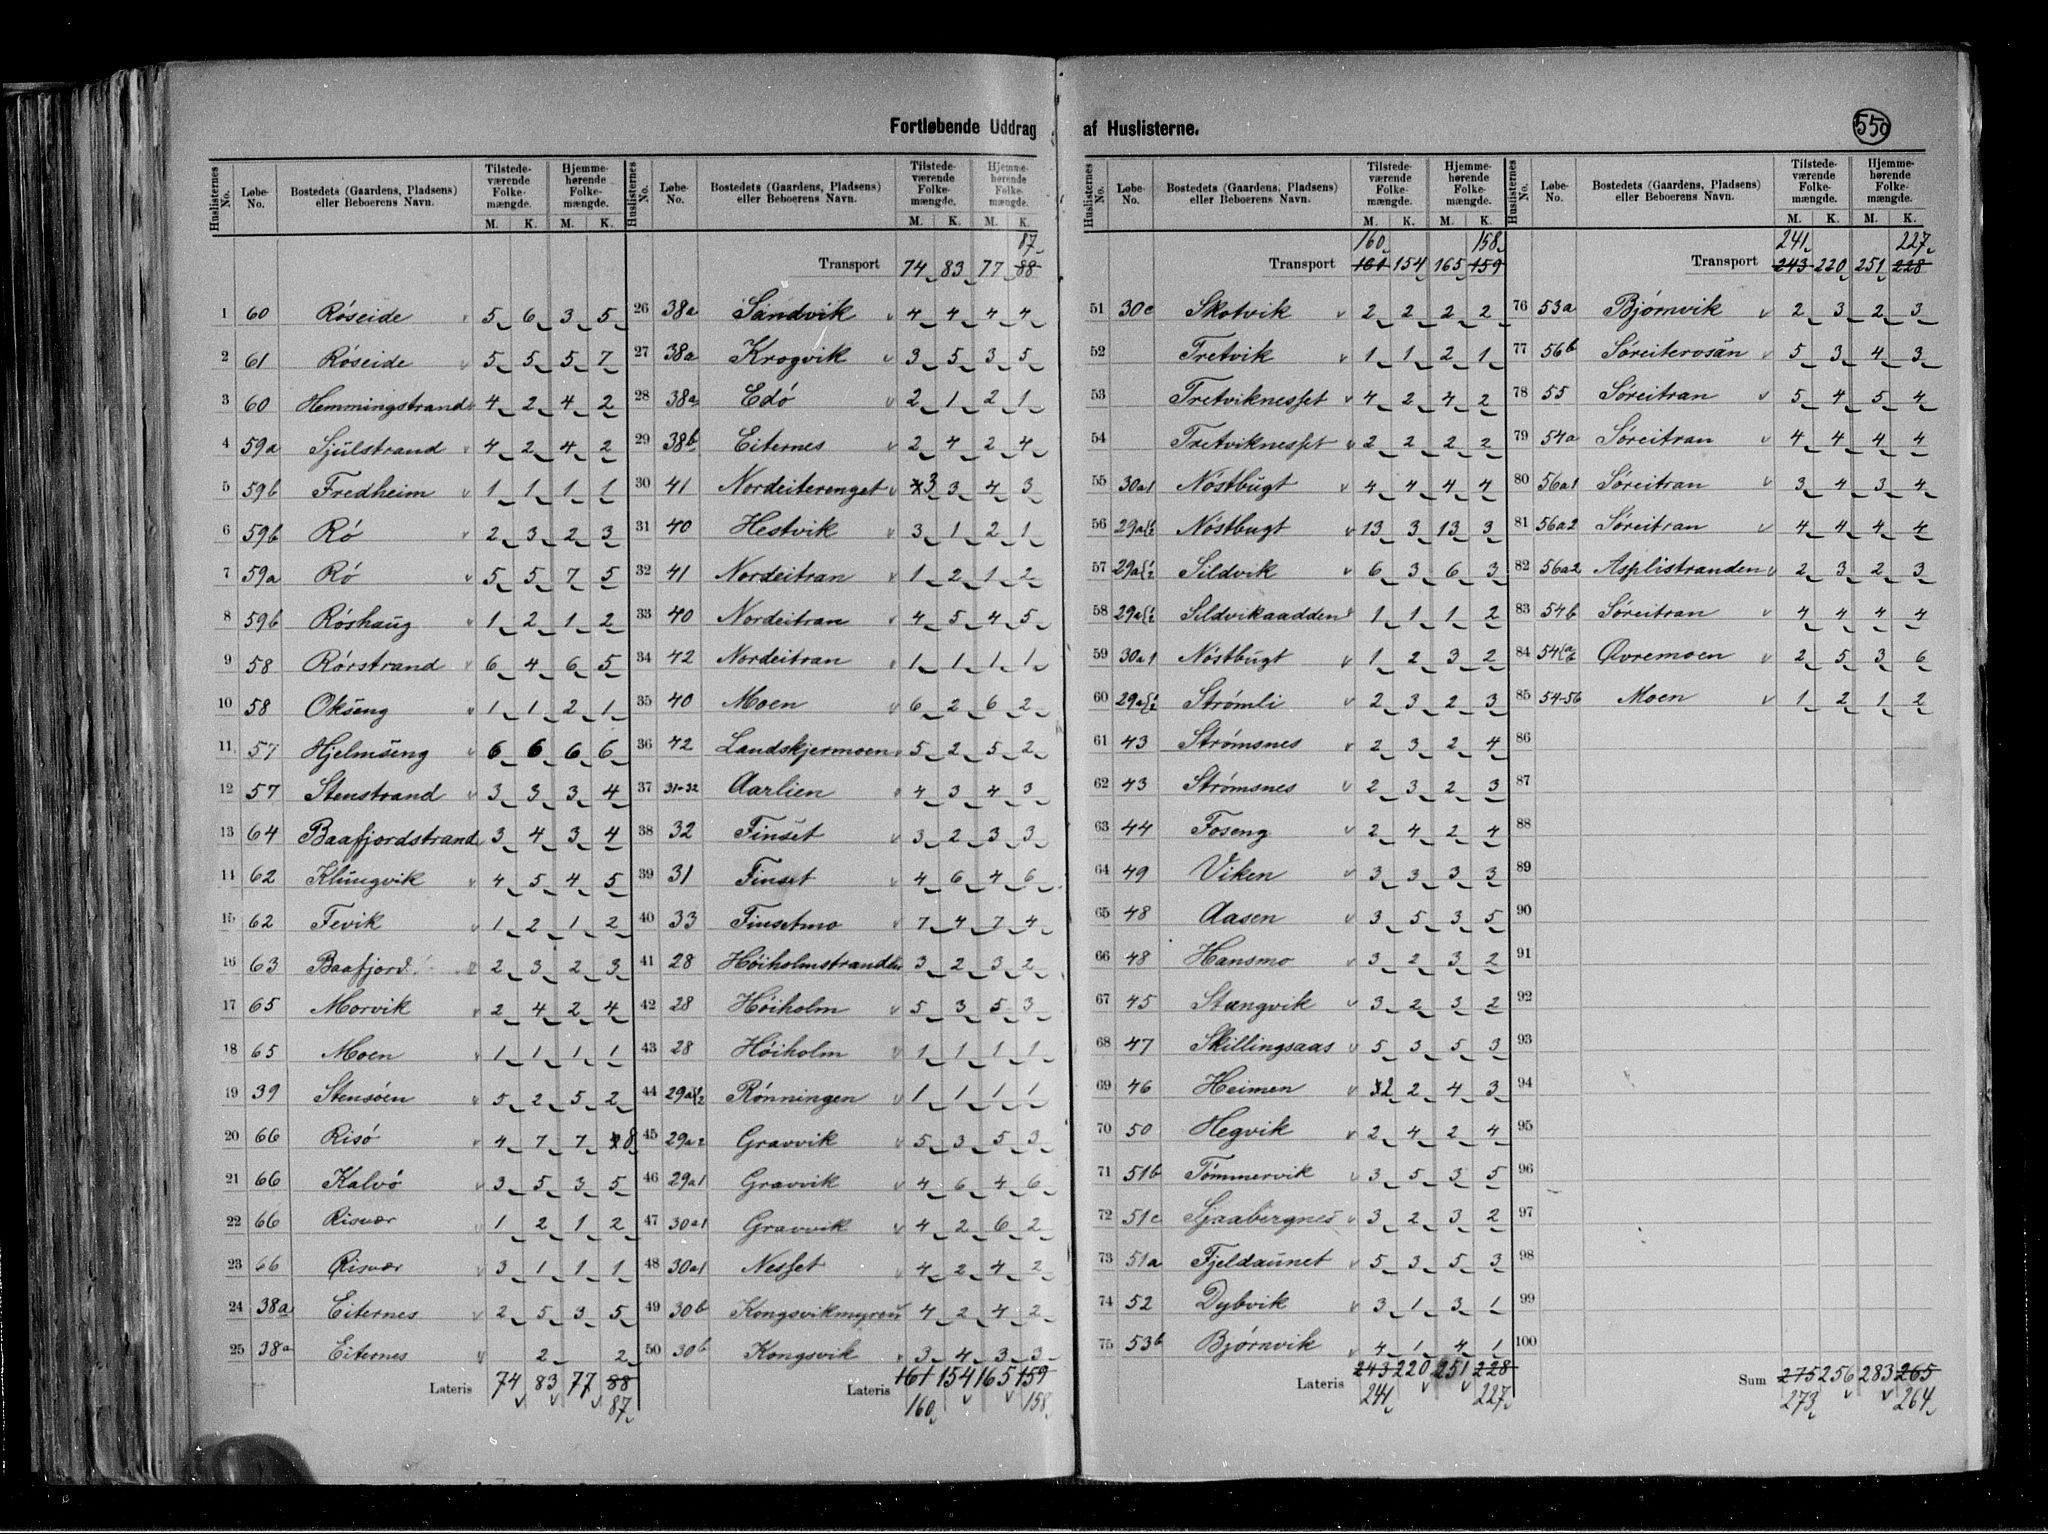 Fortløbende Uddrag af Huslisterne.
550
Huslisternes No. | Løbe-No. | Bostedets (Gaardens, Pladsens) eller Beboerens Navn. | Tilstedeværende Folkemængde. M. K. | Hjemmehørende Folkemængde. M. K.
1 60 Røseide 5 6 3 5
2 61 Røseide 5 5 5 7
3 60 Hemmingstrand 4 2 4 2
4 59a Sjulstrand 4 2 4 2
5 59b Fredheim 1 1 1 1
6 59b Rø 2 3 2 3
7 59a Rø 5 5 7 5
8 59b Røshaug 1 2 1 2
9 58 Rørstrand 6 4 6 5
10 58 Okseng 1 1 2 1
11 57 Hjelmseng 6 6 6 6
12 57 Stenstrand 3 3 3 4
13 64 Baafjordstrand 3 4 3 4
14 62 Klungvik 4 5 4 5
15 62 Fevik 1 2 1 2
16 63 Baafjord 2 3 2 3
17 65 Morvik 2 4 2 4
18 65 Moen 1 1 1 1
19 39 Stensøen 5 2 5 2
20 66 Risø 4 7 7 8
21 66 Kalvø 3 5 3 5
22 66 Risvær 1 2 1 2
23 66 Risvær 3 1 1 1
24 38a Eiternes 2 5 3 5
25 38a Eiternes 2 2
Lateris 74 83 77 88
87
Huslisternes No. | Løbe-No. | Bostedets (Gaardens, Pladsens) eller Beboerens Navn. | Tilstedeværende Folkemængde. M. K. | Hjemmehørende Folkemængde. M. K.
87
Transport 74 83 77 88
26 38a Sandvik 4 4 4 4
27 38a Krogvik 3 5 3 5
28 38a Edø 2 1 2 1
29 38b Eiternes 2 4 2 4
30 41 Nordeiterenget 3 3 4 3
31 40 Hestvik 3 1 2 1
32 41 Nordeitran 1 2 1 2
33 40 Nordeitran 4 5 4 5
34 42 Nordeitran 1 1 1 1
35 40 Moen 6 2 6 2
36 42 Landskjermoen 5 2 5 2
37 31-32 Aarlien 4 3 4 3
38 32 Finset 3 2 3 3
39 31 Finset 4 6 4 6
40 33 Finsetmo 7 4 7 4
41 28 Høiholmstranden 3 2 3 2
42 28 Høiholm 5 3 5 3
43 28 Høiholm 1 1 1 1
44 29a{1/2 Rønningen 1 1 1 1
45 29a2 Gravvik 5 3 5 3
46 29a1 Gravvik 4 6 4 6
47 30a1 Gravvik 4 2 6 2
48 30a1 Nesset 4 2 4 2
49 30b Kongsvikmyren 4 2 4 2
50 30b Kongsvik 3 4 3 3
Lateris 161 154 165 159
160 158
Huslisternes No. | Løbe-No. | Bostedets (Gaardens, Pladsens) eller Beboerens Navn. | Tilstedeværende Folkemængde. M. K. | Hjemmehørende Folkemængde. M. K.
160 158
Transport 161 154 165 159
51 30c Skotvik 2 2 2 2
52 Tretvik 1 1 2 1
53 Tretviknesset 4 2 4 2
54 Tretviknesset 2 2 2 2
55 30a1 Nøstbugt 4 4 4 4
56 29a{1/2 Nøstbugt 13 3 13 3
57 29a{1/2 Sildvik 6 3 6 3
58 29a{1/2 Sildvikaadden 1 1 1 2
59 30a1 Nøstbugt 1 2 3 2
60 29a{1/2 Strømli 2 3 2 3
61 43 Strømsnes 2 3 2 4
62 43 Strømsnes 2 3 2 3
63 44 Foseng 2 4 2 4
64 49 Viken 3 3 3 3
65 48 Aasen 3 5 3 5
66 48 Hansmo 3 2 3 2
67 45 Stangvik 3 2 3 2
68 47 Skillingsaas 5 3 5 3
69 46 Heimen 2 2 4 3
70 50 Hegvik 2 4 2 4
71 51b Tømmervik 3 5 3 5
72 51c Sjaabergnes 3 2 3 2
73 51a Fjeldaunet 5 3 5 3
74 52 Dybvik 3 1 3 1
75 53b Bjørnvik 4 1 4 1
Lateris 243 220 251 228
241 227
Huslisternes No. | Løbe-No. | Bostedets (Gaardens, Pladsens) eller Beboerens Navn. | Tilstedeværende Folkemængde. M. K. | Hjemmehørende Folkemængde. M. K.
241 227
Transport 243 220 251 228
76 53a Bjørnvik 2 3 2 3
77 56b Søreiterosan 5 3 4 3
78 55 Søreitran 5 4 5 4
79 54a Søreitran 4 4 4 4
80 56a1 Søreitran 3 4 3 4
81 56a2 Søreitran 4 4 4 4
82 56a2 Asplistranden 2 3 2 3
83 54b Søreitran 4 4 4 4
84 54{a/b Øvremoen 2 5 3 6
85 54-56 Moen 1 2 1 2
86
87
88
89
90
91
92
93
94
95
96
97
98
99
100
Sum 275 256 283 265
273 264